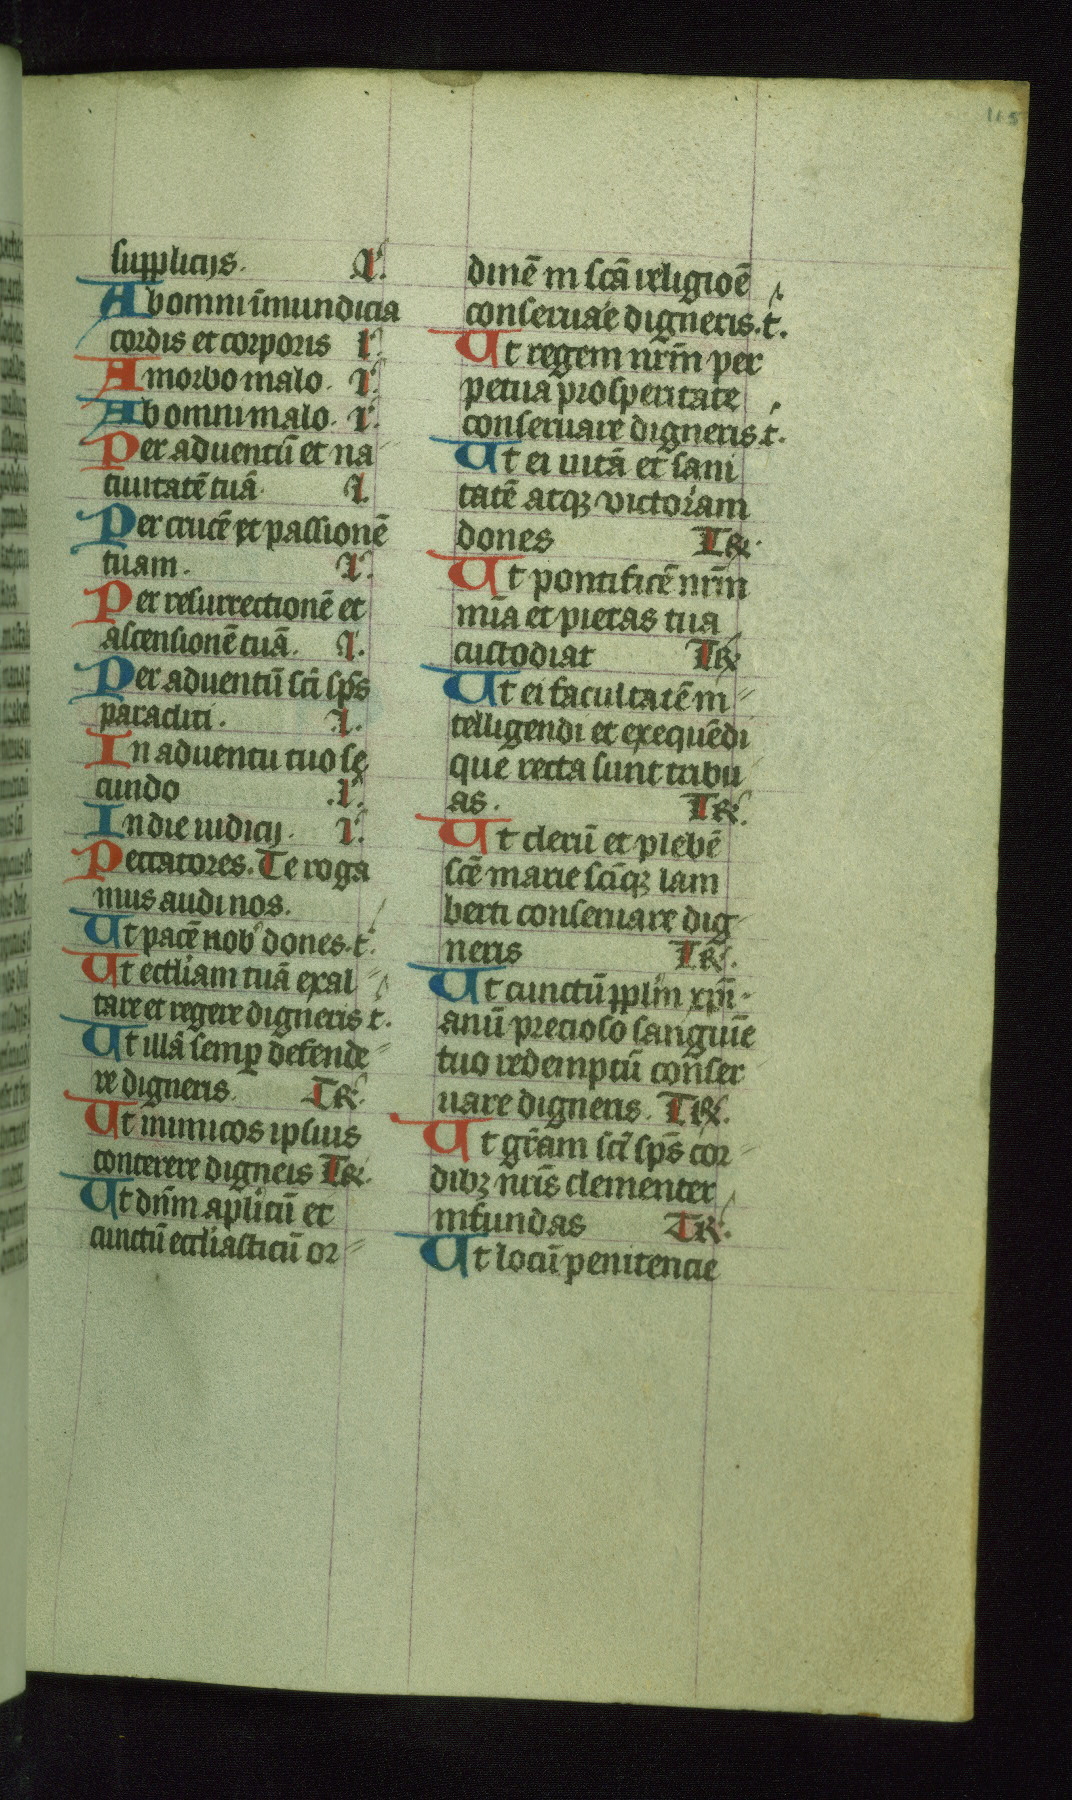 115
supplicijs. L.
Ab omni īmundicia
cordis et corporis L.
A morbo malo. L.
Ab omni malo. L.
Per aduentū et na
tiuitatē tuā. L.
Per crucē et passionē
tuam. L.
Per resurrectionē et
ascensionē tuā. L.
Per aduentū sci sp̄s
paracliti. L.
In aduentu tuo se
cundo L.
In die iudicij. L.
Peccatores. Te roga
mus audi nos.
Ut pacē nob dones. t.
Ut eccliam tuā exal
tare et regere digneris t.
Ut illā semꝑ defende
re digneris. TR.
Ut inimicos ipsius
conterere digneis TR.
Ut dnm̄ aplicū et
cunctū eccliasticū or
dinē in scā religioē
conseruae digneris. t.
Ut regem nr̄m per
petua prosperitate
conseruare digneris. t.
Ut ei uitā et sani
tatē atqꝫ victoriam
dones TR.
Ut pontificē nr̄m
mia et pietas tua
custodiat TR
Ut ei facultatē in
telligendi et exequēdi
que recta sunt tribu
as. TR.
Ut clerū et plebē
scē marie sciqꝫ lam
berti conseruare dig
neris TR.
Ut cunctū pplm xpi
anū precioso sanguīe
tuo redemptū conser
uare digneris. TR.
Ut gr̄am sci sp̄s cor
dibꝫ nris clementer
infundas TR.
Ut locū penitencie